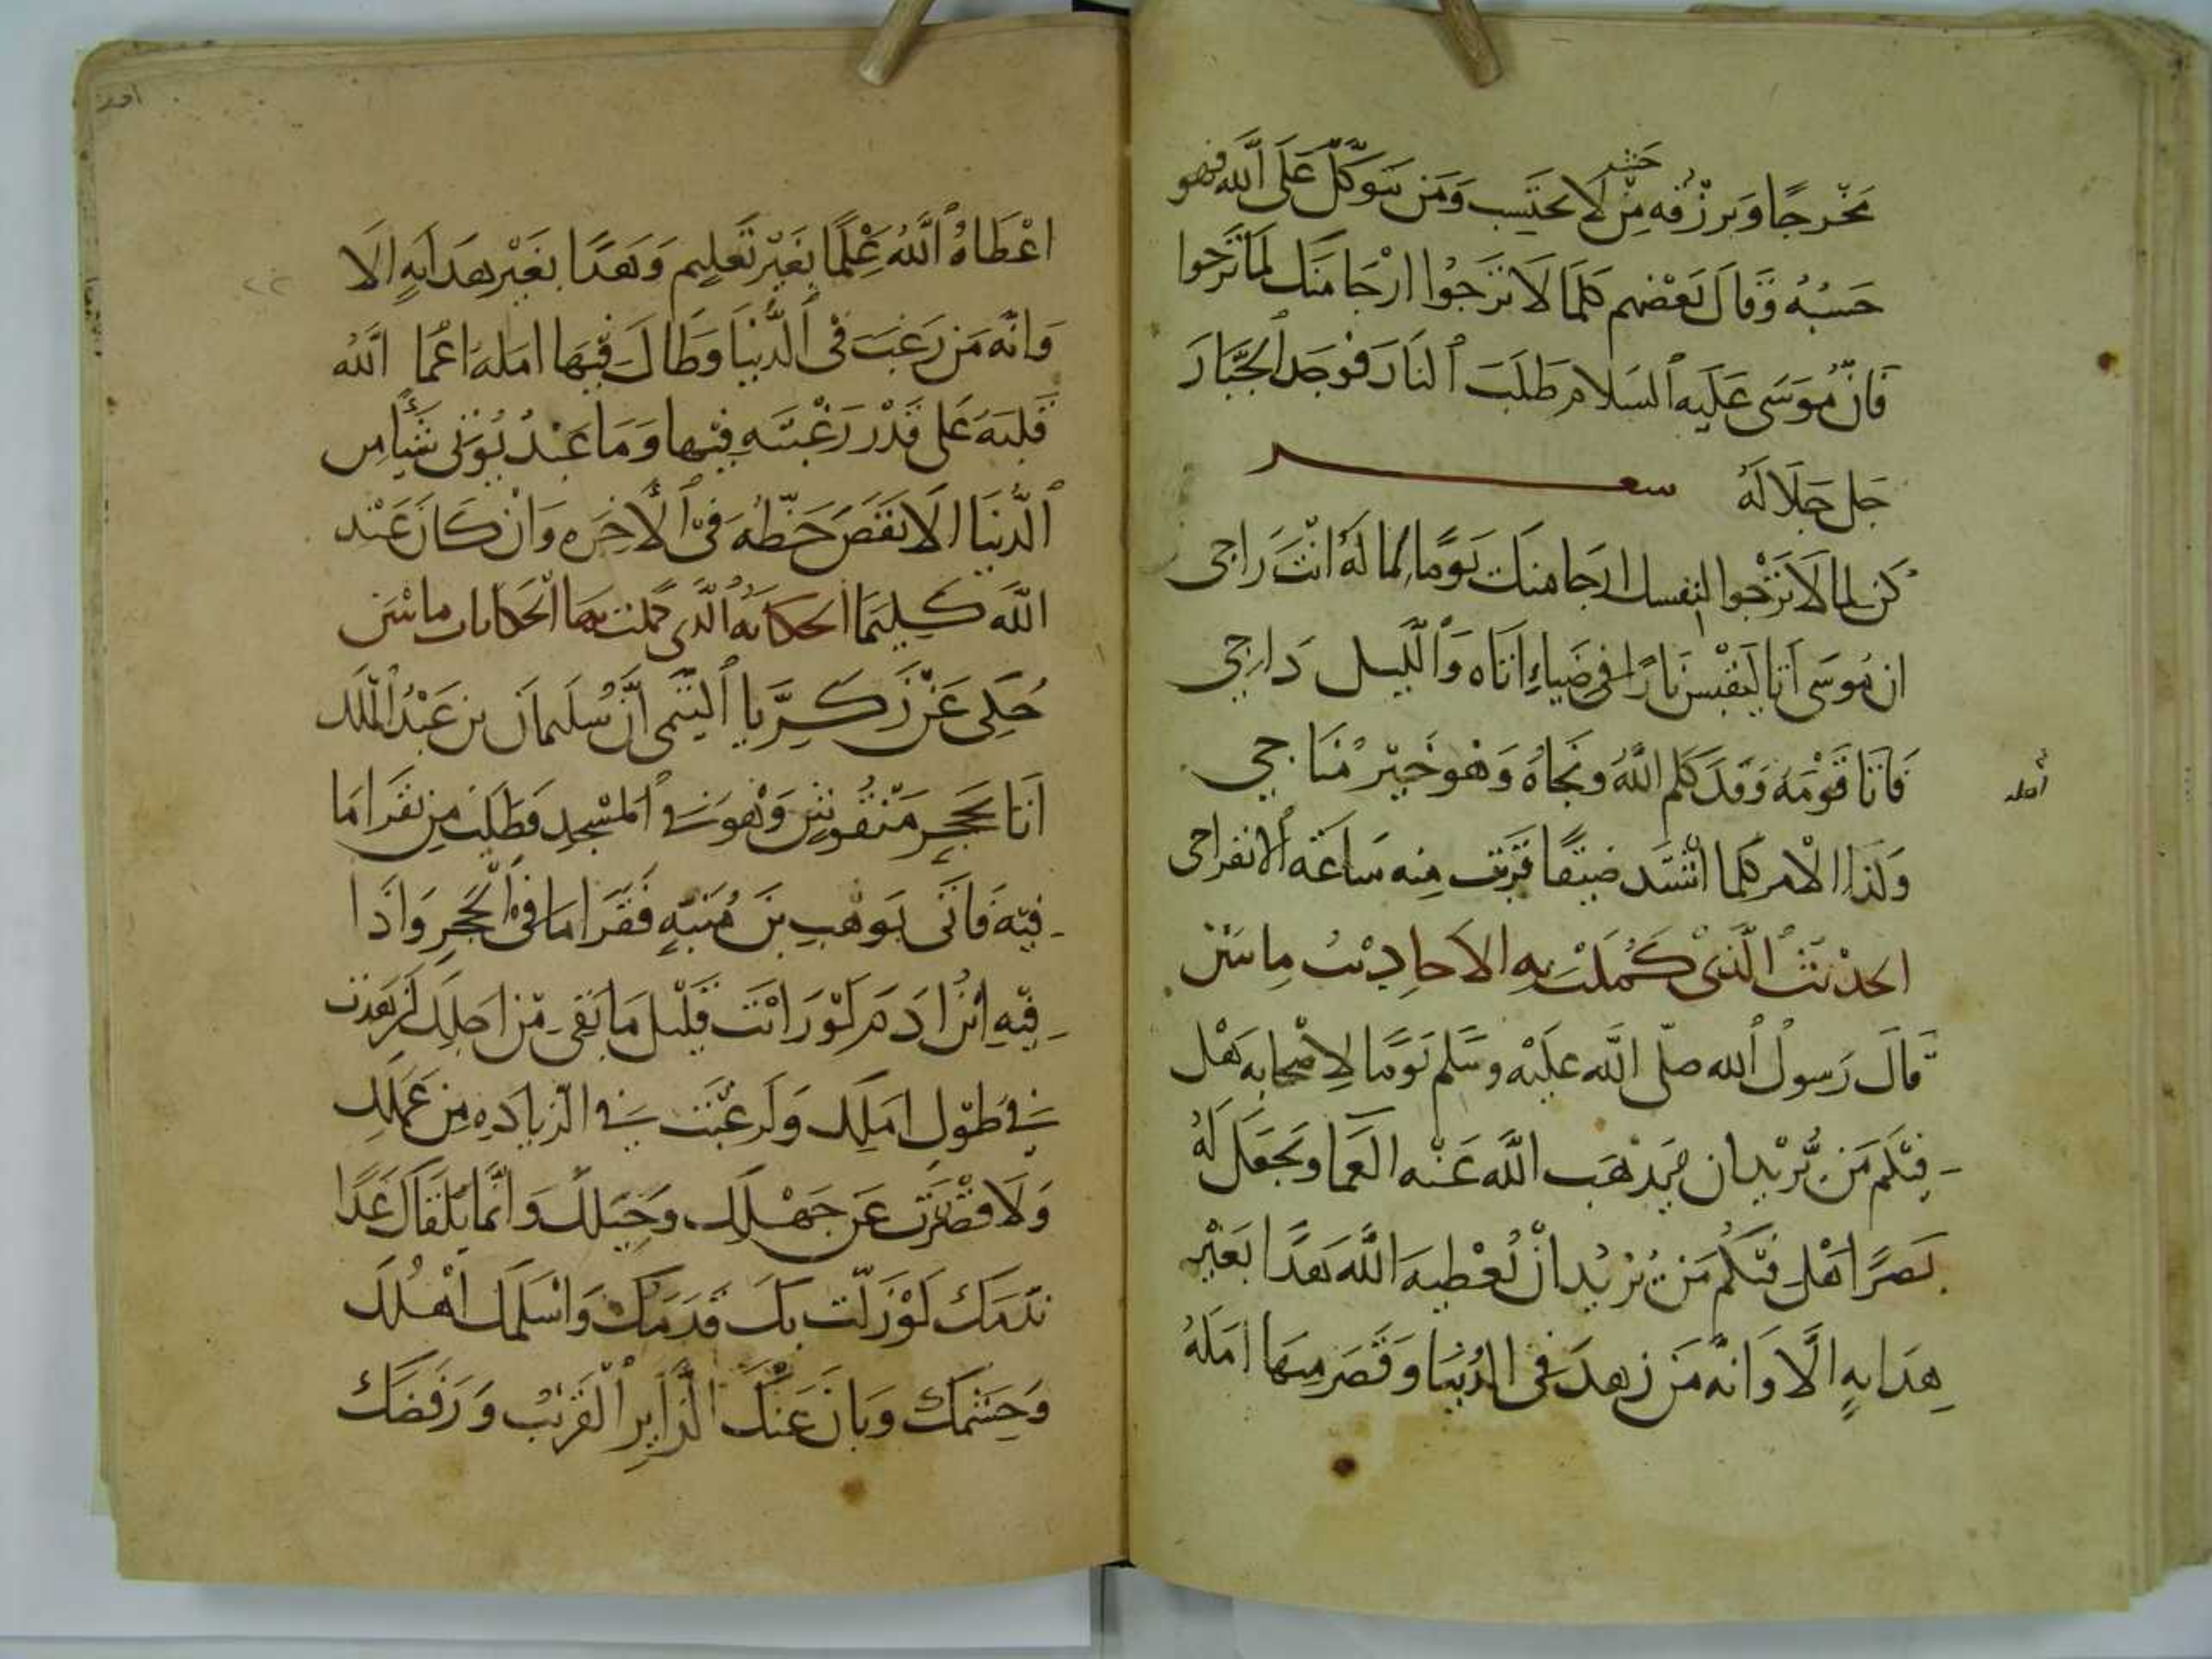 حيث
مخرجا ويرزقه من لا يحتسب ومن يتوكل على الله فهو
حسبه وقال بعضهم كلما لا ترجوا ارجا منك لما ترجوا
فان موسى عليه السلام طلب النار فوجد الجبار
جل جلاله شعر
كن لما لا ترجوا لنفسك ارجا منك يوما لما له انت راجى
ان موسى اتا ليقبس نارا فى ضياء اتاه والليل داجي
فاتا قومه وقد كلم الله ونجاه وهو خير مناجي
وكذا الامر كلما اشتد ضيقا قربت منه ساعة الانفراجى
الحديث الذى كملت به الاحاديث مائتين
قال رسول الله صلى الله عليه وسلم يوما لاصحابه هل
فيكم من يريد ان يذهب الله عنه العما ويجعل له
بصرا هل فيكم من يريد ان يعطيه الله هدا بغير
هدايه الا وانه من زهد فى الدنيا وقصر فيها امله
اعطاه الله علما بغير تعليم وهدا بغير هدايه الا
وانه من رغب فى الدنيا وطال فيها امله اعما الله
قلبه على قدر رغبته فيها وما عبد يوتى شيا من
الدنيا الا نقص حظه فى الاخره وان كان عند
الله كليما الحكايه الذى كملت بها الحكايات مائتين
حكي عن زكريا التيمى ان سليمان بن عبد الملك
اتا بحجر منقوش وهو في المسجد فطلب من يقرا ما
فيه فاتى بوهب بن منبه فقرا ما فى الحجر واذا
فيه ابن ادم لو رايت قليل ما بقى من اجلك لزهدت
في طول املك ولرغبت في الزياده من عملك
ولا قصرت عن جهلك وحيلك وانما يلقاك غدا
ندمك لو زلت بك قدمك واسلمك اهلك
وحشمك وبان عنك الزاير القريب ورفضك